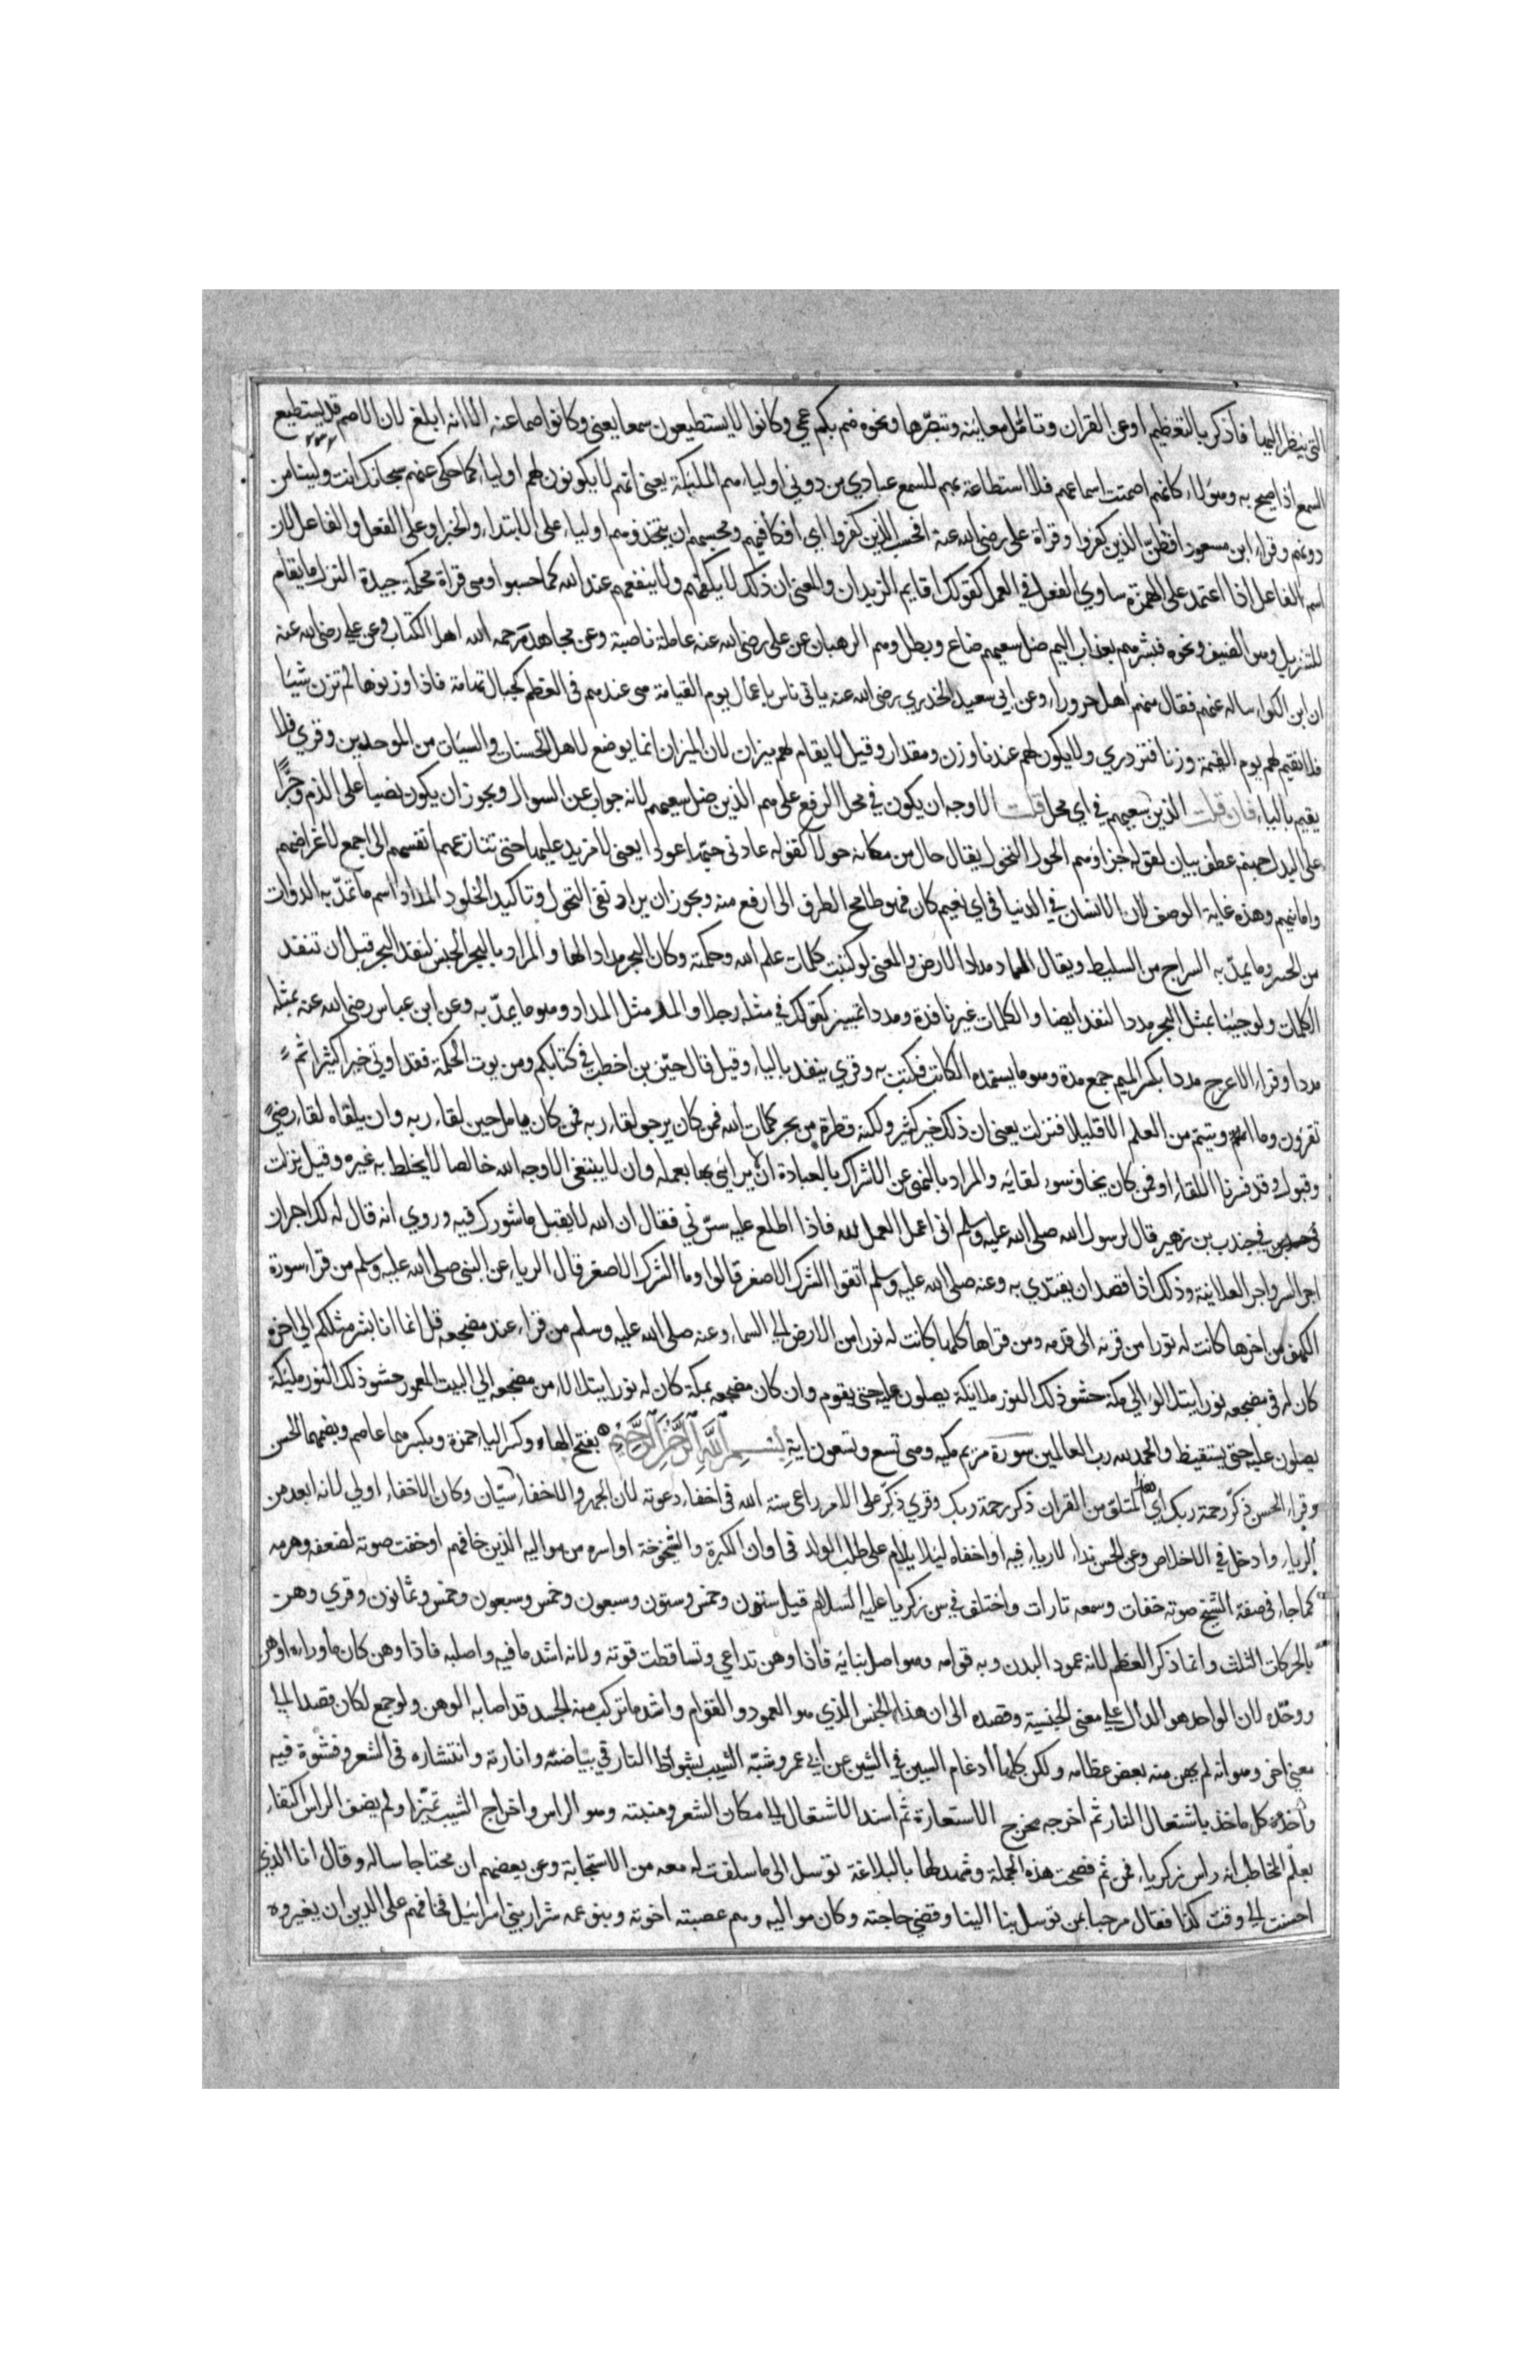 التي ينظر اليها فاذكر بالتعظيم او عن القران وتامل معانيه وتبصرها ونحوه صم بكم عمي وكانوا لا يستطيعون سمعا يعني وكانوا صما عنه الا انه ابلغ لان الاصم قد يستطيع
السمع اذا صيح به وهولاء كانهم اصمت اسماعهم فلا استطاعة بهم للسمع عبادي من دوني اولياء هم المليكة يعني انهم لا يكونون لهم اولياء كما حكي عنهم سبحانك انت ولينا من
دونهم وقراء ابن مسعود افظن الذين كفروا وقراة علي رضي الله عنه افحسب الذين كفروا اي افكافيهم ومحسبهم ان يتخذوهم اولياء على الابتداء والخبر او على الفعل والفاعل لان
اسم الفاعل اذا اعتمد على الهمزة ساوي الفعل في العمل كقولك اقايم الزيدان والمعنى ان ذلك لا يكفيهم ولا ينفعهم عند الله كما حسبوا وهي قراة محكمة جيدة النزل ما يقام
للنزيل وهو الضيف ونحوه فبشرهم بعذاب اليم ضل سعيهم ضاع وبطل وهم الرهبان عن علي رضي الله عنه عاملة ناصبة وعن مجاهد رحمه الله اهل الكتاب وعن علي رضي الله عنه
ان ابن الكواء ساله عنهم فقال منهم اهل حروراء وعن ابي سعيد الخدري رضي الله عنه ياتي ناس باعمال يوم القيامة هي عندهم في العظم كجبال تهامة فاذا وزنوها لم تزن شيئا
فلا نقيم لهم يوم القيمة وزنا فنزدري ولا يكون لهم عندنا وزن ومقدار وقيل لا يقام لهم ميزان لان الميزان انما يوضع لاهل الحسنات والسيات من الموحدين وقري فلا
يقيم بالياء فان قلت الذين سعيهم في اي محل قلت الاوجه ان يكون في محل الرفع على هم الذين ضل سعيهم لانه جواب عن السوال ويجوز ان يكون نصبا على الذم وجرا
على البدل جهنم عطف بيان لقوله جزاوهم الحول التحول يقال حال من مكانه حولا كقوله عادني حبها عودا يعني لا مزيد عليها حتى تتنازعهم انفسهم الى اجمع لاغراضهم
وامانيهم وهذه غاية الوصف لان الانسان في الدنيا في اي نعيم كان فهو طامح الطرف الى ارفع منه ويجوز ان يراد نفي التحول وتاكيد الخلود المداد اسم ما تمد به الدوات
من الحبر وما يمد به السراج من السليط ويقال السماد مداد الارض والمعنى لو كتبت كلمات علم الله وحكمته وكان البحر مدادا لها والمراد بالبحر الجنس لنفد البحر قبل ان تنفد
الكلمات ولو جينا بمثل البحر مددا لنفد ايضا والكلمات غير نافدة ومددا تمييز كقولك في مثله رجلا والمدد مثل المداد وهو ما يمد به وعن ابن عباس رضي الله عنه بمثله
مددا وقراء الاعرج مددا بكسر الميم جمع مدة وهو ما يستمده الكاتب فكتب به وقري ينفد بالياء وقيل قال حيي بن اخطب في كتابكم ومن يوت الحكمة فقد اوتي خيرا كثيرا ثم
تقرؤن وما اوتيتم من العلم الا قليلا فنزلت يعني ان ذلك خير كثير ولكنه قطرة من بحر كلمات الله فمن كان يرجو لقاء ربه فمن كان يامل حسن لقاء ربه وان يلقاه لقاء رضي
وقبول وقد فسرنا اللقاء او فمن كان يخاف سوء لقايه والمراد بالنهي عن الاشراك بالعبادة ان لا يرايي بها بعمله وان لا يبتغي الا وجه الله خالصا لا يخلط به غيره وقيل نزلت
في جندب بن زهير قال لرسول الله صلى الله عليه وسلم اني اعمل العمل لله فاذا اطلع عليه سرني فقال ان الله لا يقبل ما شورك فيه وروي انه قال له لك اجران
اجر السر واجر العلانية وذلك اذا قصد ان يقتدي به وعنه صلى الله عليه وسلم اتقوا الشرك الاصغر قالوا وما الشرك الاصغر قال الرياء عن النبي صلى الله عليه وسلم من قراء سورة
الكهف من اخرها كانت له نورا من قرنه الى قدمه ومن قراها كلها كانت له نورا من الارض الي السماء وعنه صلى الله عليه وسلم من قراء عند مضجعه قل انما انا بشر مثلكم الي اخره
كان له في مضجعه نورا يتلالؤ الي مكة حشو ذلك النور ملايكة يصلون عليه حتى يقوم وان كان مضجعه بمكة كان له نورا يتلالا من مضجعه الي البيت المعمور حشو ذلك النور مليكة
يصلون عليه حتى يستيقظ والحمد لله رب العالمين سورة مريم مكيه وهي تسع وتسعون اية بسم الله الرحمن الرحيم بفتح الهاء وكسر الياء حمزة وبكسرهما عاصم وبضمهما الحسن
وقراء الحسن ذكر رحمة ربك اي هذا المتلو من القران ذكر رحمة ربك وقري ذكر على الامر راعي سنة الله في اخفاء دعوته لان الجهر والاخفاء سيان وكان الاخفاء اولي لانه ابعد من
الرياء وادخل في الاخلاص وعن الحسن نداء لا رياء فيه او اخفاه ليلا يلام على طلب الولد في اوان الكبرة والشيخوخة او اسره من مواليه الذين خافهم او خفت صوته لضعفه وهرمه
كما جاء في صفة الشيخ صوته خفات وسمعه تارات واختلف في سن زكريا عليه السلام قيل ستون وخمس وستون وسبعون وخمس وسبعون وخمس وثمانون وقري وهن
بالحركات الثلث وانما ذكر العظم لانه عمود البدن وبه قوامه وهو اصل بنايه فاذا وهن تداعي وتساقطت قوته ولانه اشد ما فيه واصلبه فاذا وهن كان ما وراه اوهن
ووحده لان الواحد هو الدال علي معنى الجنسية وقصده الى ان هذا الجنس الذي هو العمود والقوام واشد ما تركب منه الجسد قد اصابه الوهن ولو جمع لكان قصدا الي
معني اخر وهو انه لم يهن منه بعض عظامه ولكن كلها ادغام السين في الشين عن ابي عمرو شبه الشيب بشواظ النار في بياضه وانارته وانتشاره في الشعر وفشوه فيه
واخذه كل ماخذ باشتعال النار ثم اخرجه مخرج الاستعارة ثم اسند الاشتعال الي مكان الشعر ومنبته وهو الراس واخراج الشيب تميزا ولم يضف الراس اكتفاء
بعلم المخاطب انه راس زكرياء فمن ثم فصحت هذه الجملة وشهد لها بالبلاغة توسل الى ما سلفت له معه من الاستجابة وعن بعضهم ان محتاجا ساله وقال انا الذي
احسنت الي وقت كذا فقال مرحبا بمن توسل بنا الينا وقضي حاجته وكان مواليه وهم عصبته اخوته وبنو عمه شرار بني اسرائيل فخافهم على الدين ان يغيروه